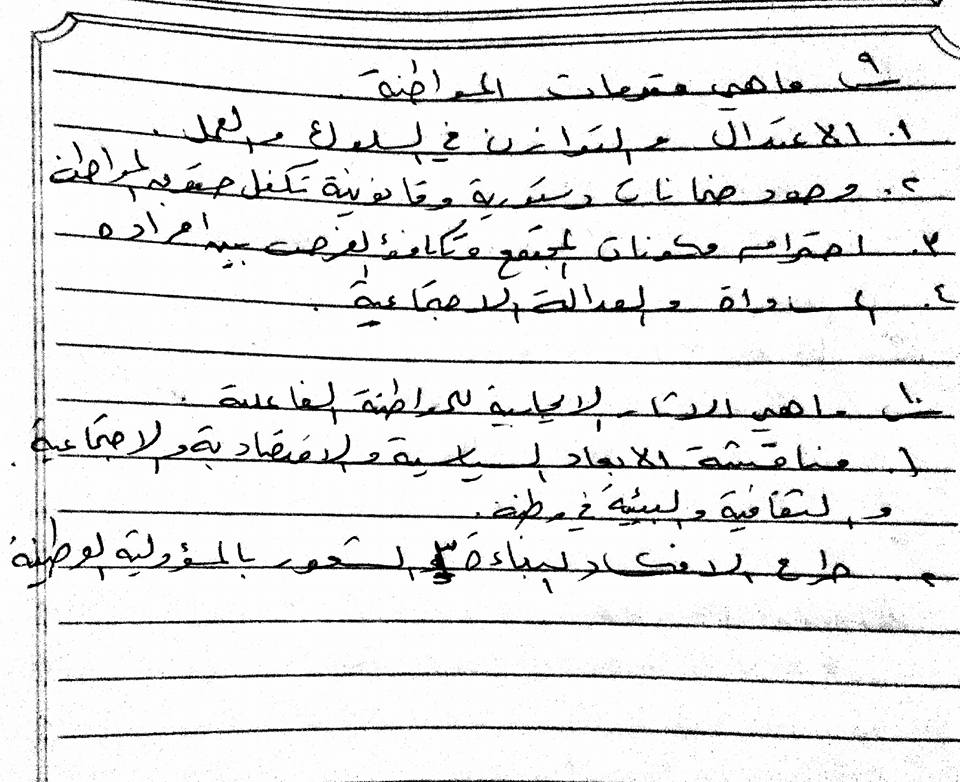 س٩ ماهي مقومات المواطنة.
١. الاعتدال والتوازن في السلوك والعمل.
٢. وجود ضمانات دستورية وقانونية تكفل حقوق المواطن
٣. احترام مكونات المجتمع وتكافؤ الفرص بين افراده
٤. المساواة والعدالة الاجتماعية.
س١٠ ماهي الاثار الايجابية للمواطنة الفاعلة.
١. مناقشة الابعاد السياسية والاقتصادية والاجتماعية.
والثقافية والبيئة في وطنه.
٢. الافكار البناءة ٣ الشعور بالمسؤولية الوطنية